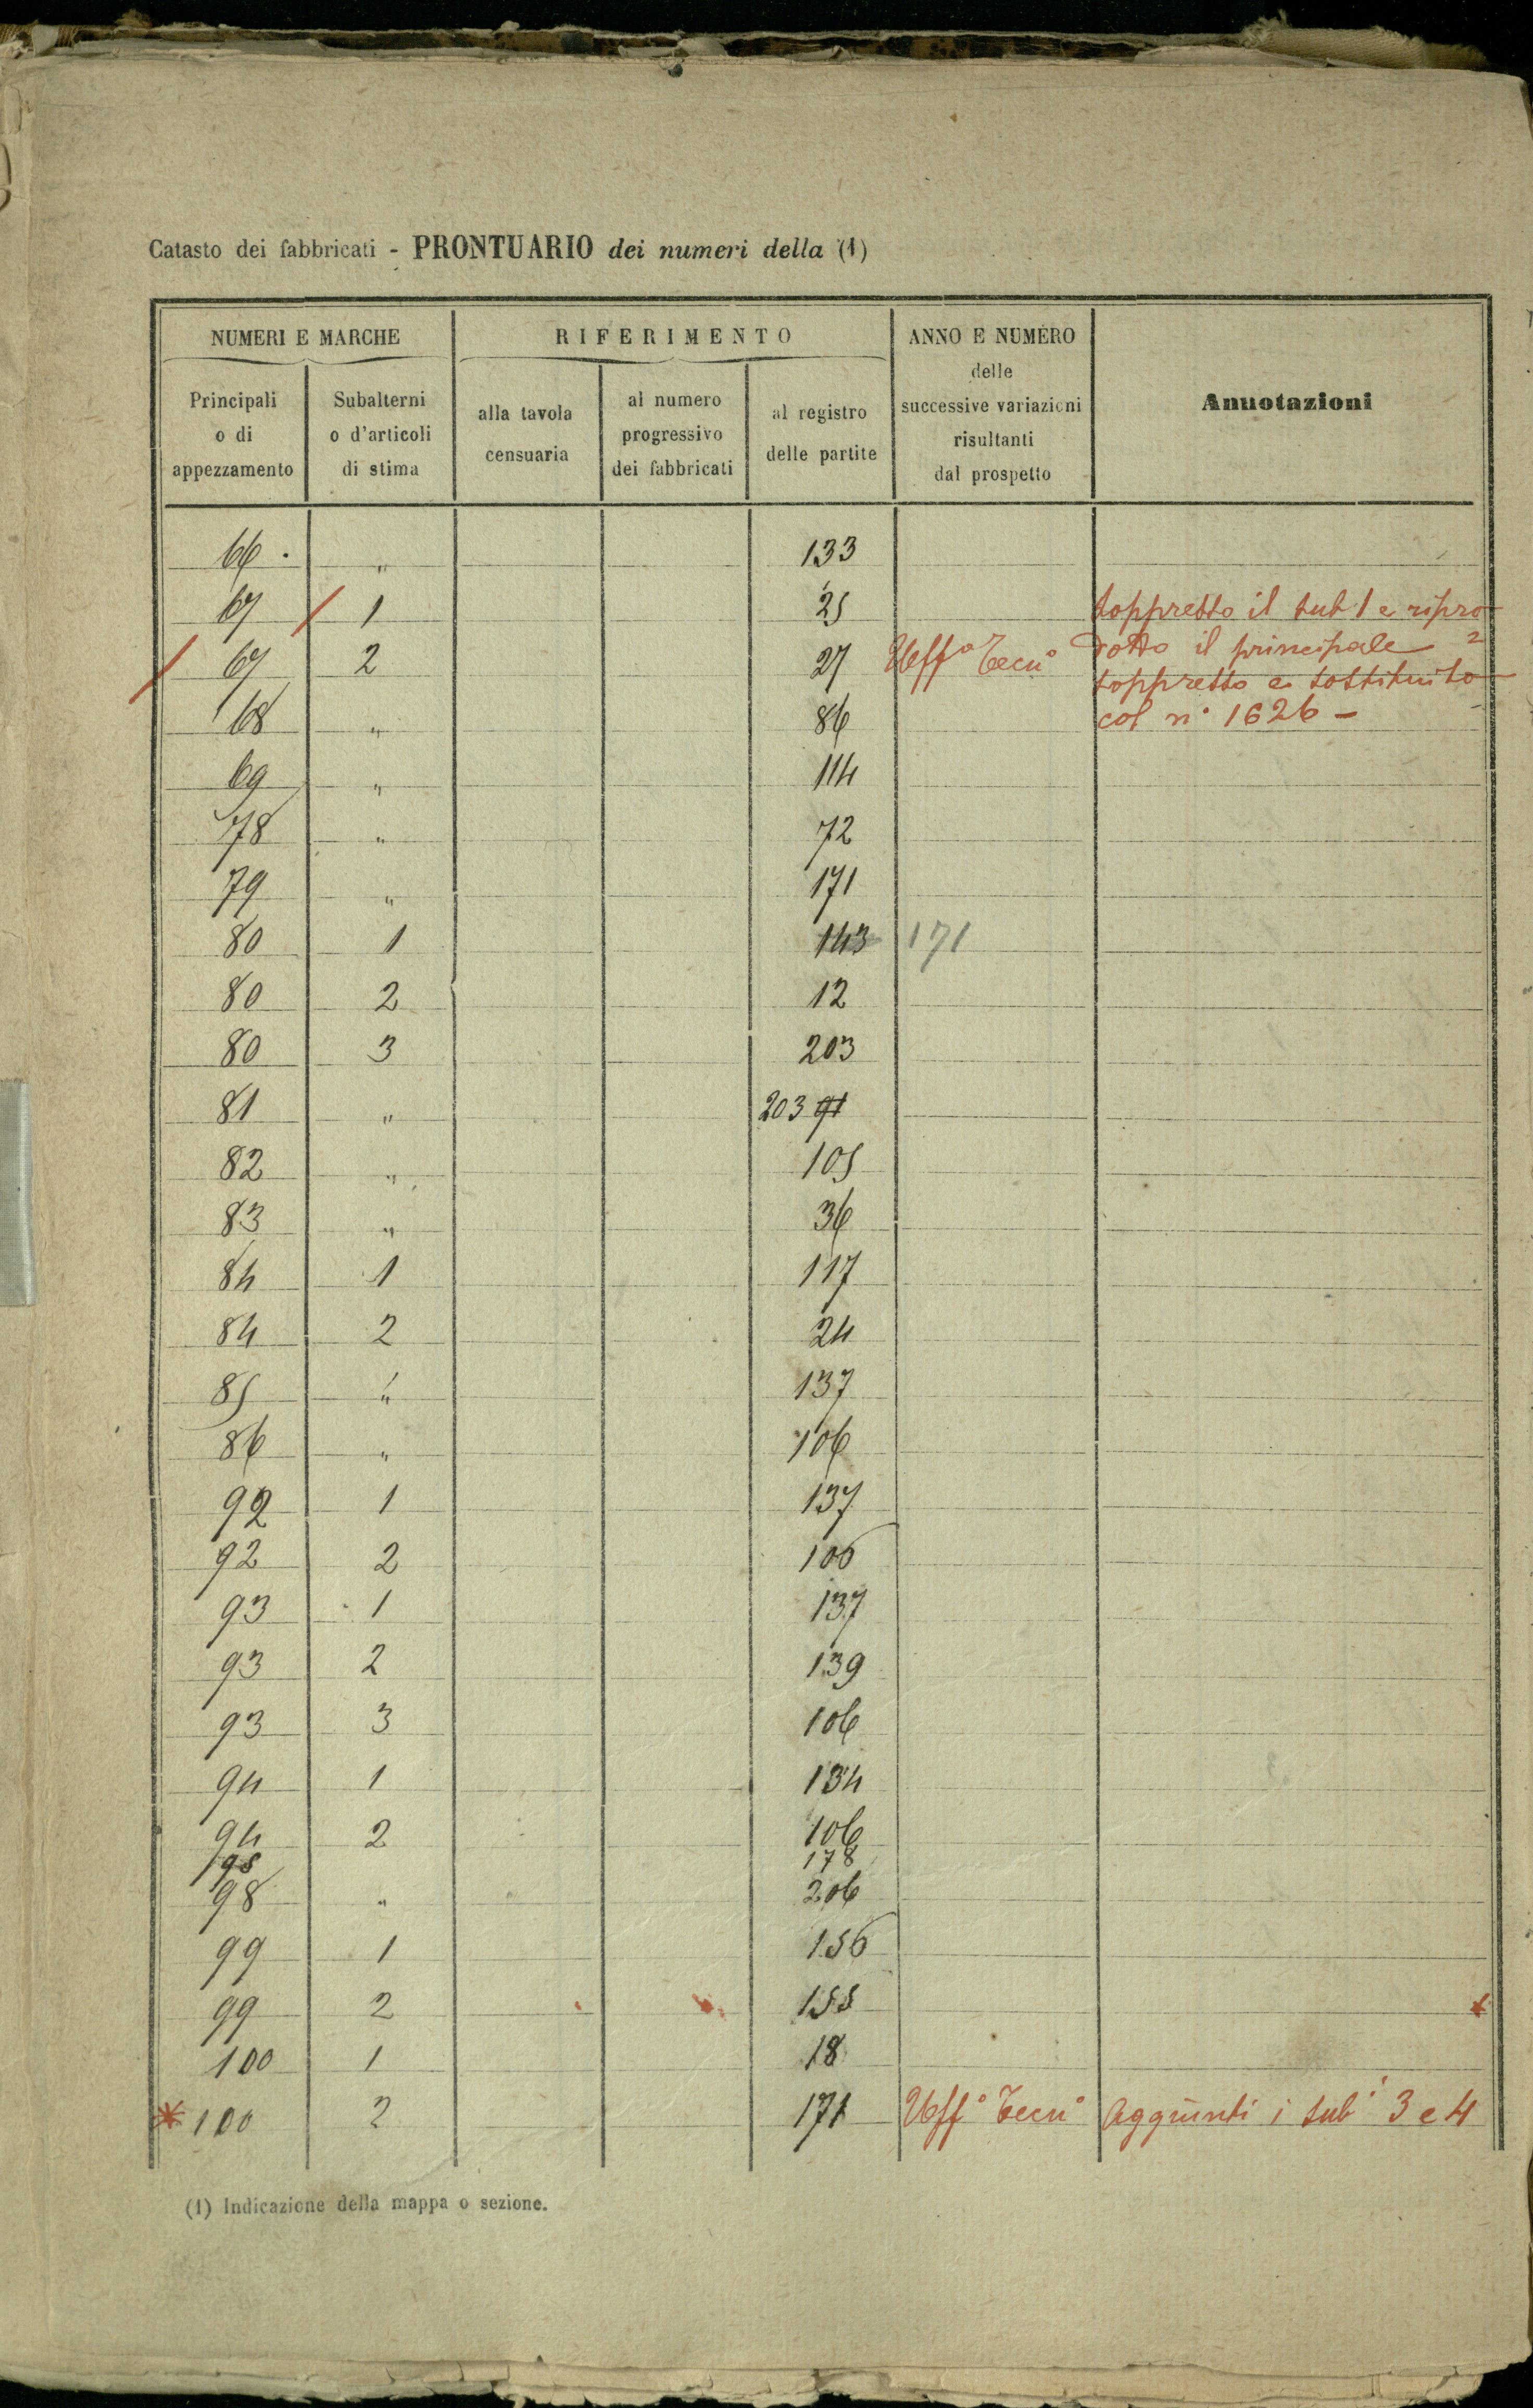 Catasto dei fabbricati - PRONTUARIO dei numeri della (1)
NUMERI E MARCHE
RIFERIMENTO
ANNO E NUMERO
delle
successive variazioni
risultanti
dal prospetto
Annotazioni
Principali
o di
appezzamento
Subalterni
o d'articoli
di stima
alla tavola
censuaria
al numero
progressivo
dei fabbricati
al registro
delle partite
66 . " 133
67 / 1 25 soppresso il sub 1 e ripro
/ 67 2 27 Uff° Tecn° dotto il principale 2
soppresso e sostituito
68 " 86 col n° 1626 -
69 " 114
78 " 72
79 " 171
80 1 143 171
80 2 12
80 3 203
81 " 203 91
82 " 105
83 " 36
84 1 117
84 2 24
85 " 137
86 " 106
92 1 137
92 2 106
93 1 137
93 2 139
93 3 106
94 1 134
94 2 106
195 178
98 " 206
99 1 156
99 2 155
100 1 18
* 100 2 171 Uff° Tecn° Aggiunti i sub i 3 e 4
(1) Indicazione della mappa o sezione.